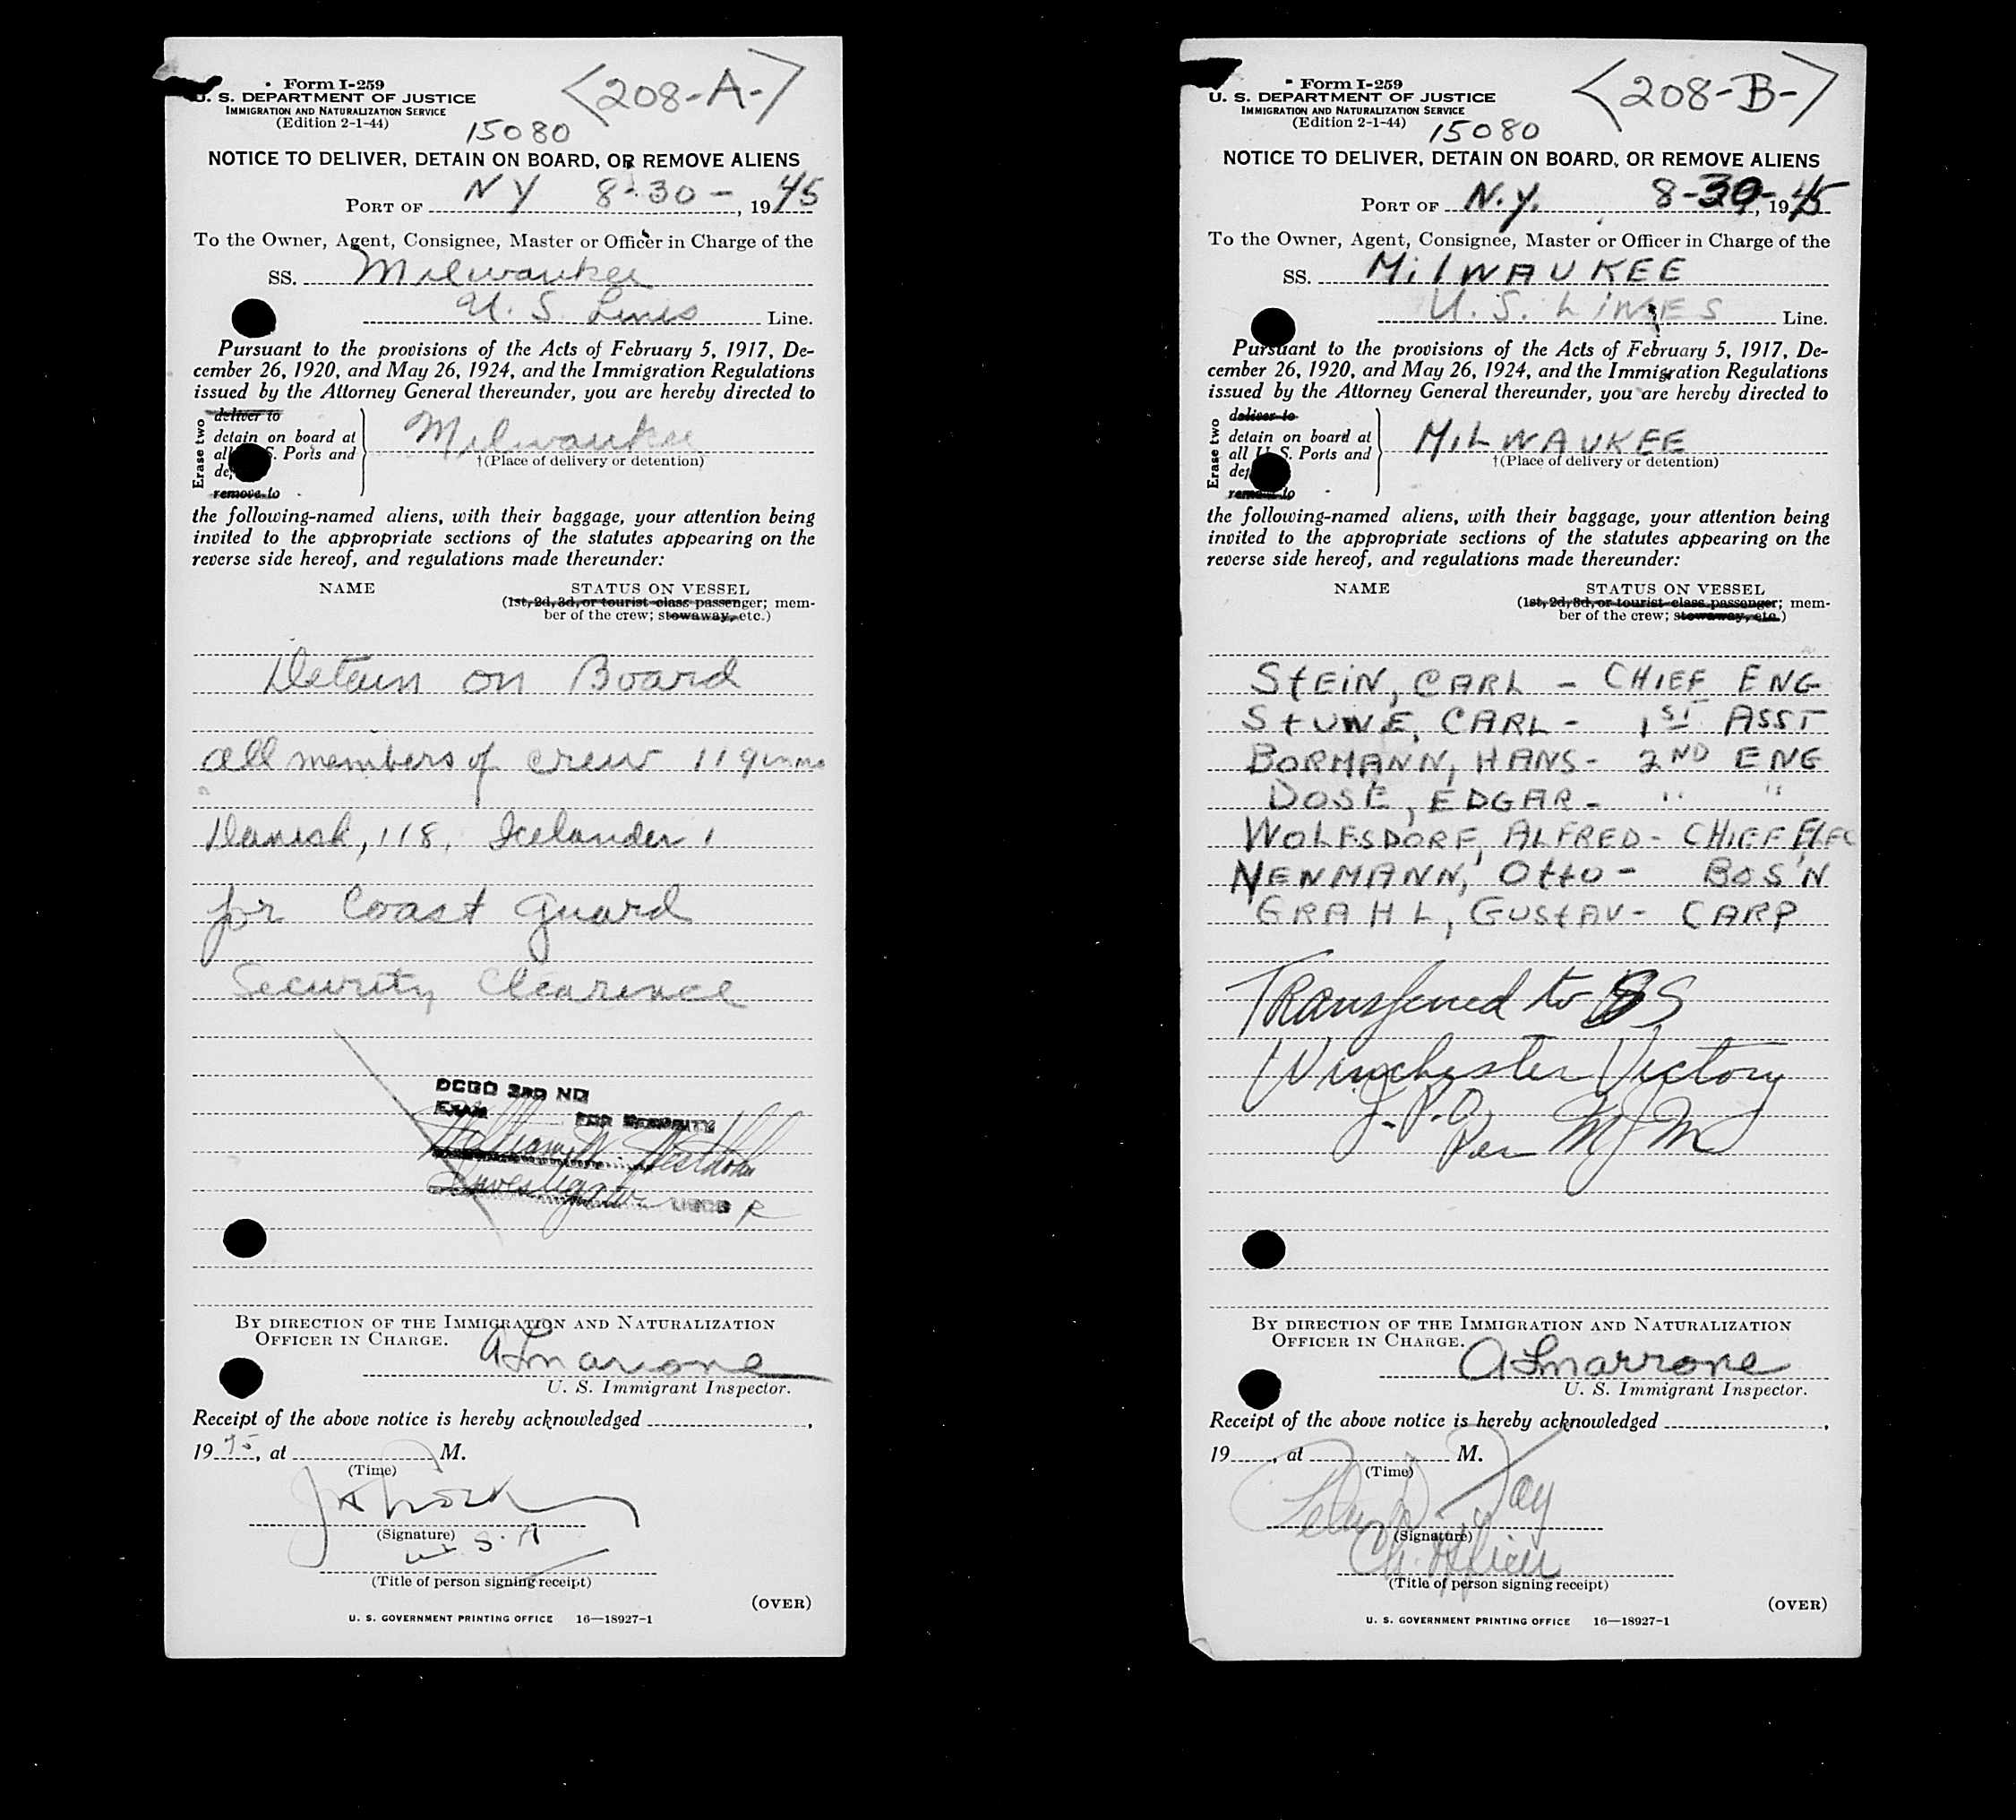 Form I-259
U. S. DEPARTMENT OF JUSTICE
IMMIGRATION AND NATURALIZATION SERVICE
(Edition 2-1-44)
<208-A->
15080
NOTICE TO DELIVER, DETAIN ON BOARD, OR REMOVE ALIENS
PORT OF NY 8-30-, 1945
To the Owner, Agent, Consignee, Master or Officer in Charge of the
SS. Milwaukee
U. S. Lines Line.
Pursuant to the provisions of the Acts of February 5, 1917, De-
cember 26, 1920, and May 26, 1924, and the Immigration Regulations
issued by the Attorney General thereunder, you are hereby directed to
Erase two
deliver to
detain on board at
all S. Ports and
remove to
Milwaukee
†(Place of delivery or detention)
the following-named aliens, with their baggage, your attention being
invited to the appropriate sections of the statutes appearing on the
reverse side hereof, and regulations made thereunder:
NAME STATUS ON VESSEL
(1st, 2d, 3d, or tourist class passenger; mem-
ber of the crew; stowaway, etc.)
Detain on Board
all members of crew 119
Danish, 118, Icelander 1
for Coast Guard
Security Clearence
DCGO 3RD ND
EXAM FOR SECURITY
William
Investigator USCG R
BY DIRECTION OF THE IMMIGRATION AND NATURALIZATION
OFFICER IN CHARGE.
A Marrone
U. S. Immigrant Inspector.
Receipt of the above notice is hereby acknowledged ,
1945, at M.
(Time)
(Signature)
(Title of person signing receipt)
(OVER)
U. S. GOVERNMENT PRINTING OFFICE 16—18927-1
Form I-259
U. S. DEPARTMENT OF JUSTICE
IMMIGRATION AND NATURALIZATION SERVICE
(Edition 2-1-44)
<208-B->
15080
NOTICE TO DELIVER, DETAIN ON BOARD, OR REMOVE ALIENS
PORT OF N.Y. 8-30-, 1945
To the Owner, Agent, Consignee, Master or Officer in Charge of the
SS. MILWAUKEE
U.S. LINES Line.
Pursuant to the provisions of the Acts of February 5, 1917, De-
cember 26, 1920, and May 26, 1924, and the Immigration Regulations
issued by the Attorney General thereunder, you are hereby directed to
Erase two
deliver to
detain on board at
all U.S. Ports and
remove to
MILWAUKEE
†(Place of delivery or detention)
the following-named aliens, with their baggage, your attention being
invited to the appropriate sections of the statutes appearing on the
reverse side hereof, and regulations made thereunder:
NAME STATUS ON VESSEL
(1st, 2d, 3d, or tourist class passenger; mem-
ber of the crew; stowaway, etc.)
STEIN, CARL - CHIEF ENG
STUWE, CARL - 1ST ASST
BORMANN, HANS - 2ND ENG
DOSE, EDGAR - " "
WOLFSDORF, ALFRED - CHIEF ELEC
NENMANN, Otto - BOS'N
GRAHL, GUSTAV - CARP
Transferred to SS
Winchester Victory
J. P. O.
Per MJM
BY DIRECTION OF THE IMMIGRATION AND NATURALIZATION
OFFICER IN CHARGE.
A Marrone
U. S. Immigrant Inspector.
Receipt of the above notice is hereby acknowledged ,
19 , at M.
(Time)
(Signature)
Ch. Officer
(Title of person signing receipt)
(OVER)
U. S. GOVERNMENT PRINTING OFFICE 16—18927-1